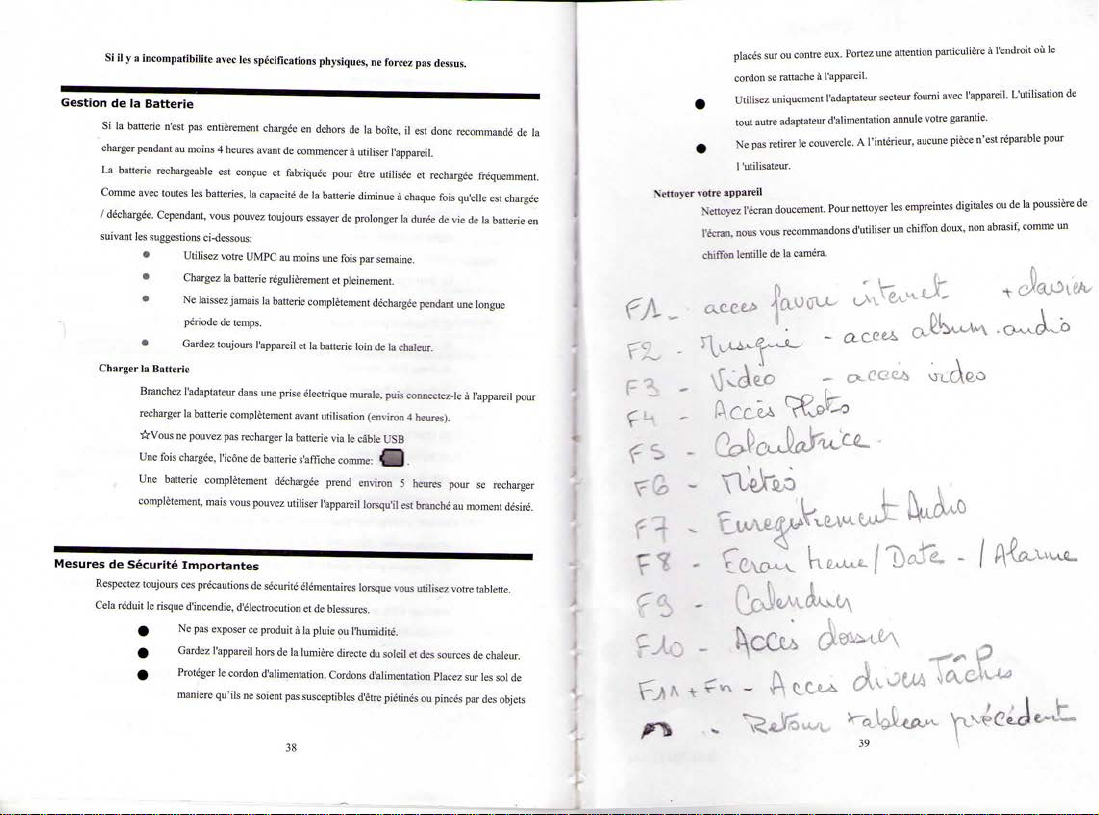 Si il y a incompatibilite avec les spécifications physiques, ne forcez pas dessus.
Gestion de la Batterie
Si la batterie n'est pas entièrement chargée en dehors de la boîte, il est donc recommandé de la
charger pendant au moins 4 heures avant de commencer à utiliser l'appareil.
La batterie rechargeable est conçue et fabriquée pour être utilisée et rechargée fréquemment.
Comme avec toutes les batteries, la capacité de la batterie diminue à chaque fois qu'elle est chargée
/ déchargée. Cependant, vous pouvez toujours essayer de prolonger la durée de vie de la batterie en
suivant les suggestions ci-dessous:
● Utilisez votre UMPC au moins une fois par semaine.
● Chargez la batterie régulièrement et pleinement.
● Ne laissez jamais la batterie complètement déchargée pendant une longue
période de temps.
● Gardez toujours l'appareil et la batterie loin de la chaleur.
Charger la Batterie
Branchez l'adaptateur dans une prise électrique murale, puis connectez-le à l'appareil pour
recharger la batterie complètement avant utilisation (environ 4 heures).
☆Vous ne pouvez pas recharger la batterie via le câble USB
Une fois chargée, l'icône de batterie s'affiche comme: .
Une batterie complètement déchargée prend environ 5 heures pour se recharger
complètement, mais vous pouvez utiliser l'appareil lorsqu'il est branché au moment désiré.
Mesures de Sécurité Importantes
Respectez toujours ces précautions de sécurité élémentaires lorsque vous utilisez votre tablette.
Cela réduit le risque d'incendie, d'électrocution et de blessures.
● Ne pas exposer ce produit à la pluie ou l'humidité.
● Gardez l'appareil hors de la lumière directe du soleil et des sources de chaleur.
● Protéger le cordon d'alimentation. Cordons d'alimentation Placez sur les sol de
maniere qu'ils ne soient pas susceptibles d'être piétinés ou pincés par des objets
38
placés sur ou contre eux. Portez une attention particulière à l'endroit où le
cordon se rattache à l'appareil.
● Utilisez uniquement l'adaptateur secteur fourni avec l'appareil. L'utilisation de
tout autre adaptateur d'alimentation annule votre garantie.
● Ne pas retirer le couvercle. A l'intérieur, aucune pièce n'est réparable pour
l 'utilisateur.
Nettoyer votre appareil
Nettoyez l'écran doucement. Pour nettoyer les empreintes digitales ou de la poussière de
l'écran, nous vous recommandons d'utiliser un chiffon doux, non abrasif, comme un
chiffon lentille de la caméra.
F1 - acces favori internet + clavier
F2 - Musique - acces album audio
F3 - Vidéo - acces video
F4 - Accès Photo
F5 - Calculatrice
F6 - Météo
F7 - Enregistrement Audio
F8 - Ecran heure / Date - / Alarme
F9 - Calendrier
F10 - Acces dossier
F11 + Fn - Acces divers Tâches
- Retour tableau précédent
39